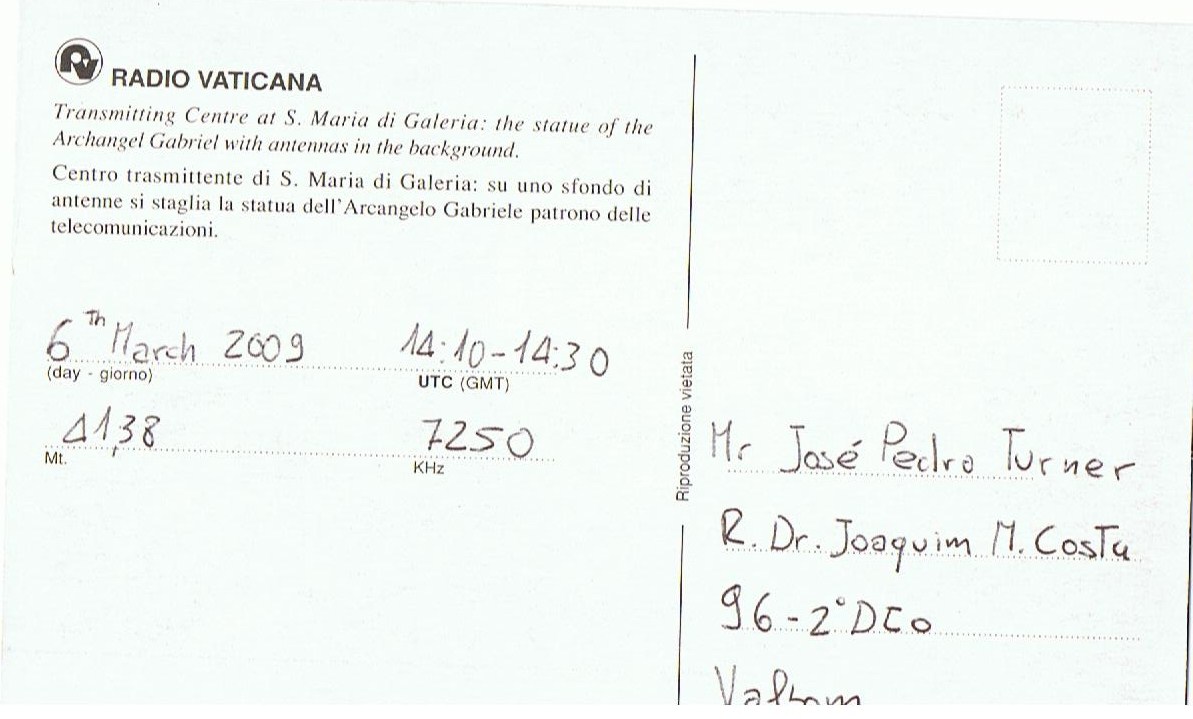 RV RADIO VATICANA
Transmitting Centre at S. Maria di Galeria: the statue of the
Archangel Gabriel with antennas in the background.
Centro trasmittente di S. Maria di Galeria: su uno sfondo di
antenne si staglia la statua dell'Arcangelo Gabriele patrono delle
telecomunicazioni.
6Th March 2009
(day - giorno)
14:10-14:30
UTC (GMT)
41,38
Mt.
7250
KHz
Riproduzione vietata
Mr José Pedro Turner
R. Dr. Joaquim M. Costa
96-2°DCo